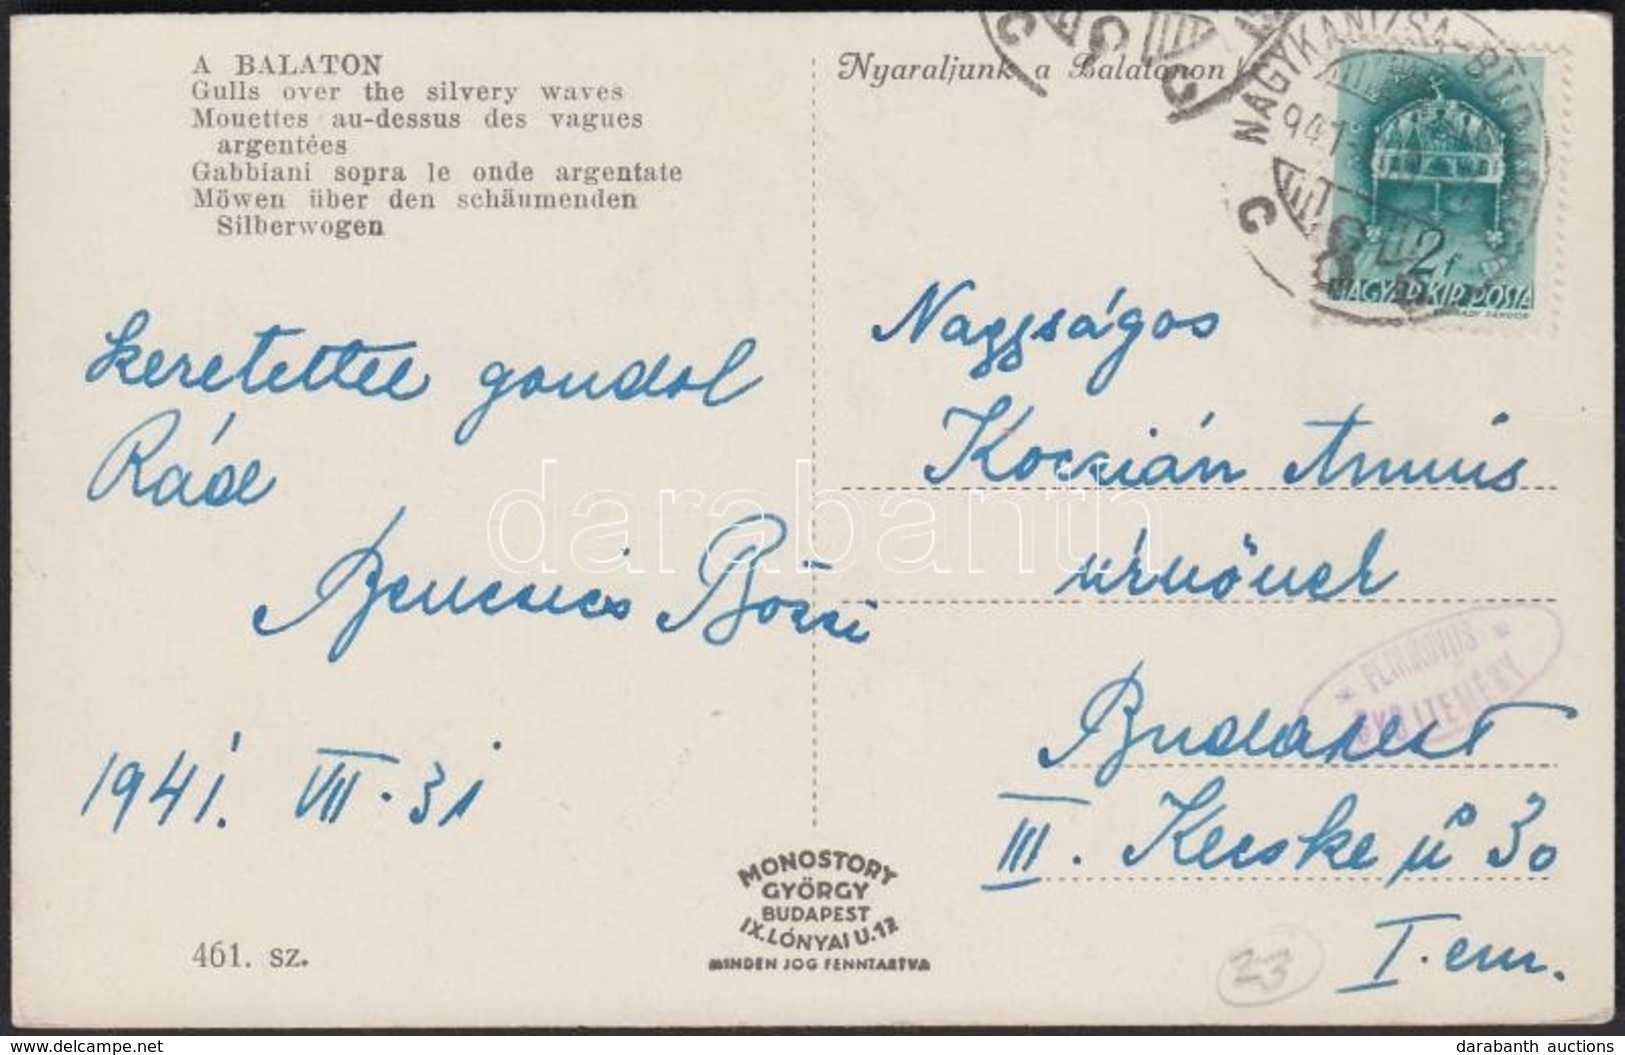 A BALATON
Gulls over the silvery waves
Mouettes au-dessus des vagues
argentées
Gabbiani sopra le onde argentate
Möwen über den schäumenden
Silberwogen
Nyaraljunk a Balatonon
NAGYKANIZSA-BUDAPEST
941
2f
MAGYAR KIR. POSTA
keretettel gondol
Rád
Bencsics Bözsi
1941. VII. 31
Nagyságos
Koczián Annus
úrnőnek
Budapest
III. Kecske u 30
I. em.
PETRIKOVICS
GYŰJTEMÉNY
MONOSTORY
GYÖRGY
BUDAPEST
IX. LÓNYAI U. 12
MINDEN JOG FENNTARTVA
461. sz.
23
darabanth
www.delcampe.net
darabanth auctions